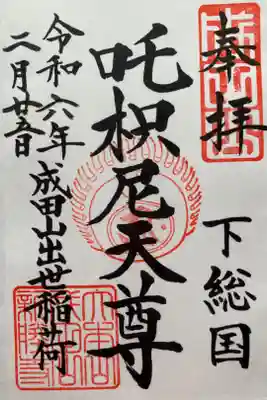 奉拝
下総国
吒枳尼天尊
成田山出世稲荷
令和六年
二月廿五日